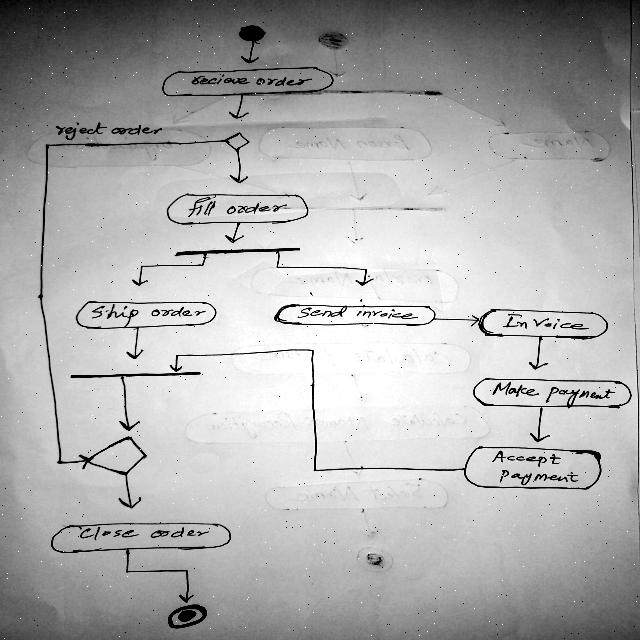 recieve order
reject order
fill order
Ship order
Send invoice
Invoice
Make payment
Accept
payment
Close order